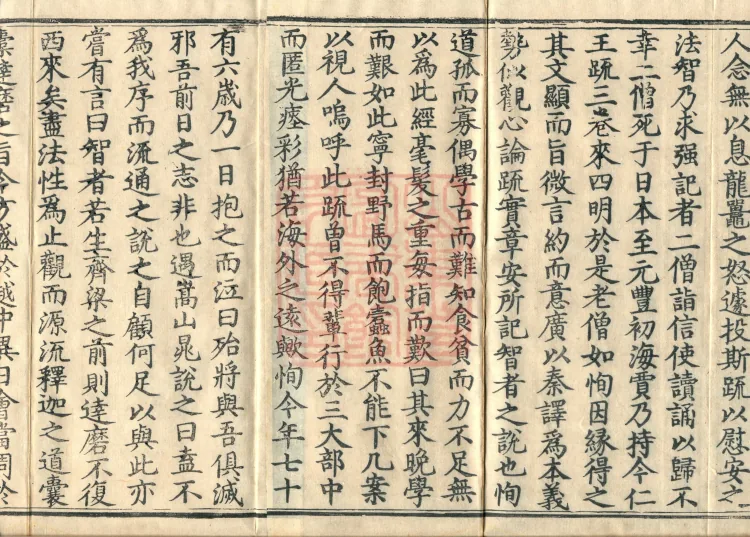 人念無以息龍鼉之怒遽投斯疏以慰安之
法智乃求强記者二僧詣信使讀誦以歸不
幸二僧死于日本至元豐初海賈乃持今仁
王疏三卷來四明於是老僧如恂因緣得之
其文顯而旨微言約而意廣以秦譯爲本義
勢似觀心論疏實章安所記智者之說也恂
道孤而寡偶學古而難知食貧而力不足無
以爲此經毫髮之重每指而歎曰其來晚學
而艱如此寧封野馬而飽蠹魚不能下几案
以視人嗚呼此疏曾不得輩行於三大部中
而匿光瘞彩猶若海外之遠歟恂今年七十
有六歲乃一日抱之而泣曰殆將與吾俱滅
邪吾前日之志非也遇嵩山晁說之曰盍不
爲我序而流通之說之自顧何足以與此亦
嘗有言曰智者若生齊梁之前則達磨不復
西來矣盡法性爲止觀而源流釋迦之道囊
橐達磨之旨今方盛於越中異日會當周於